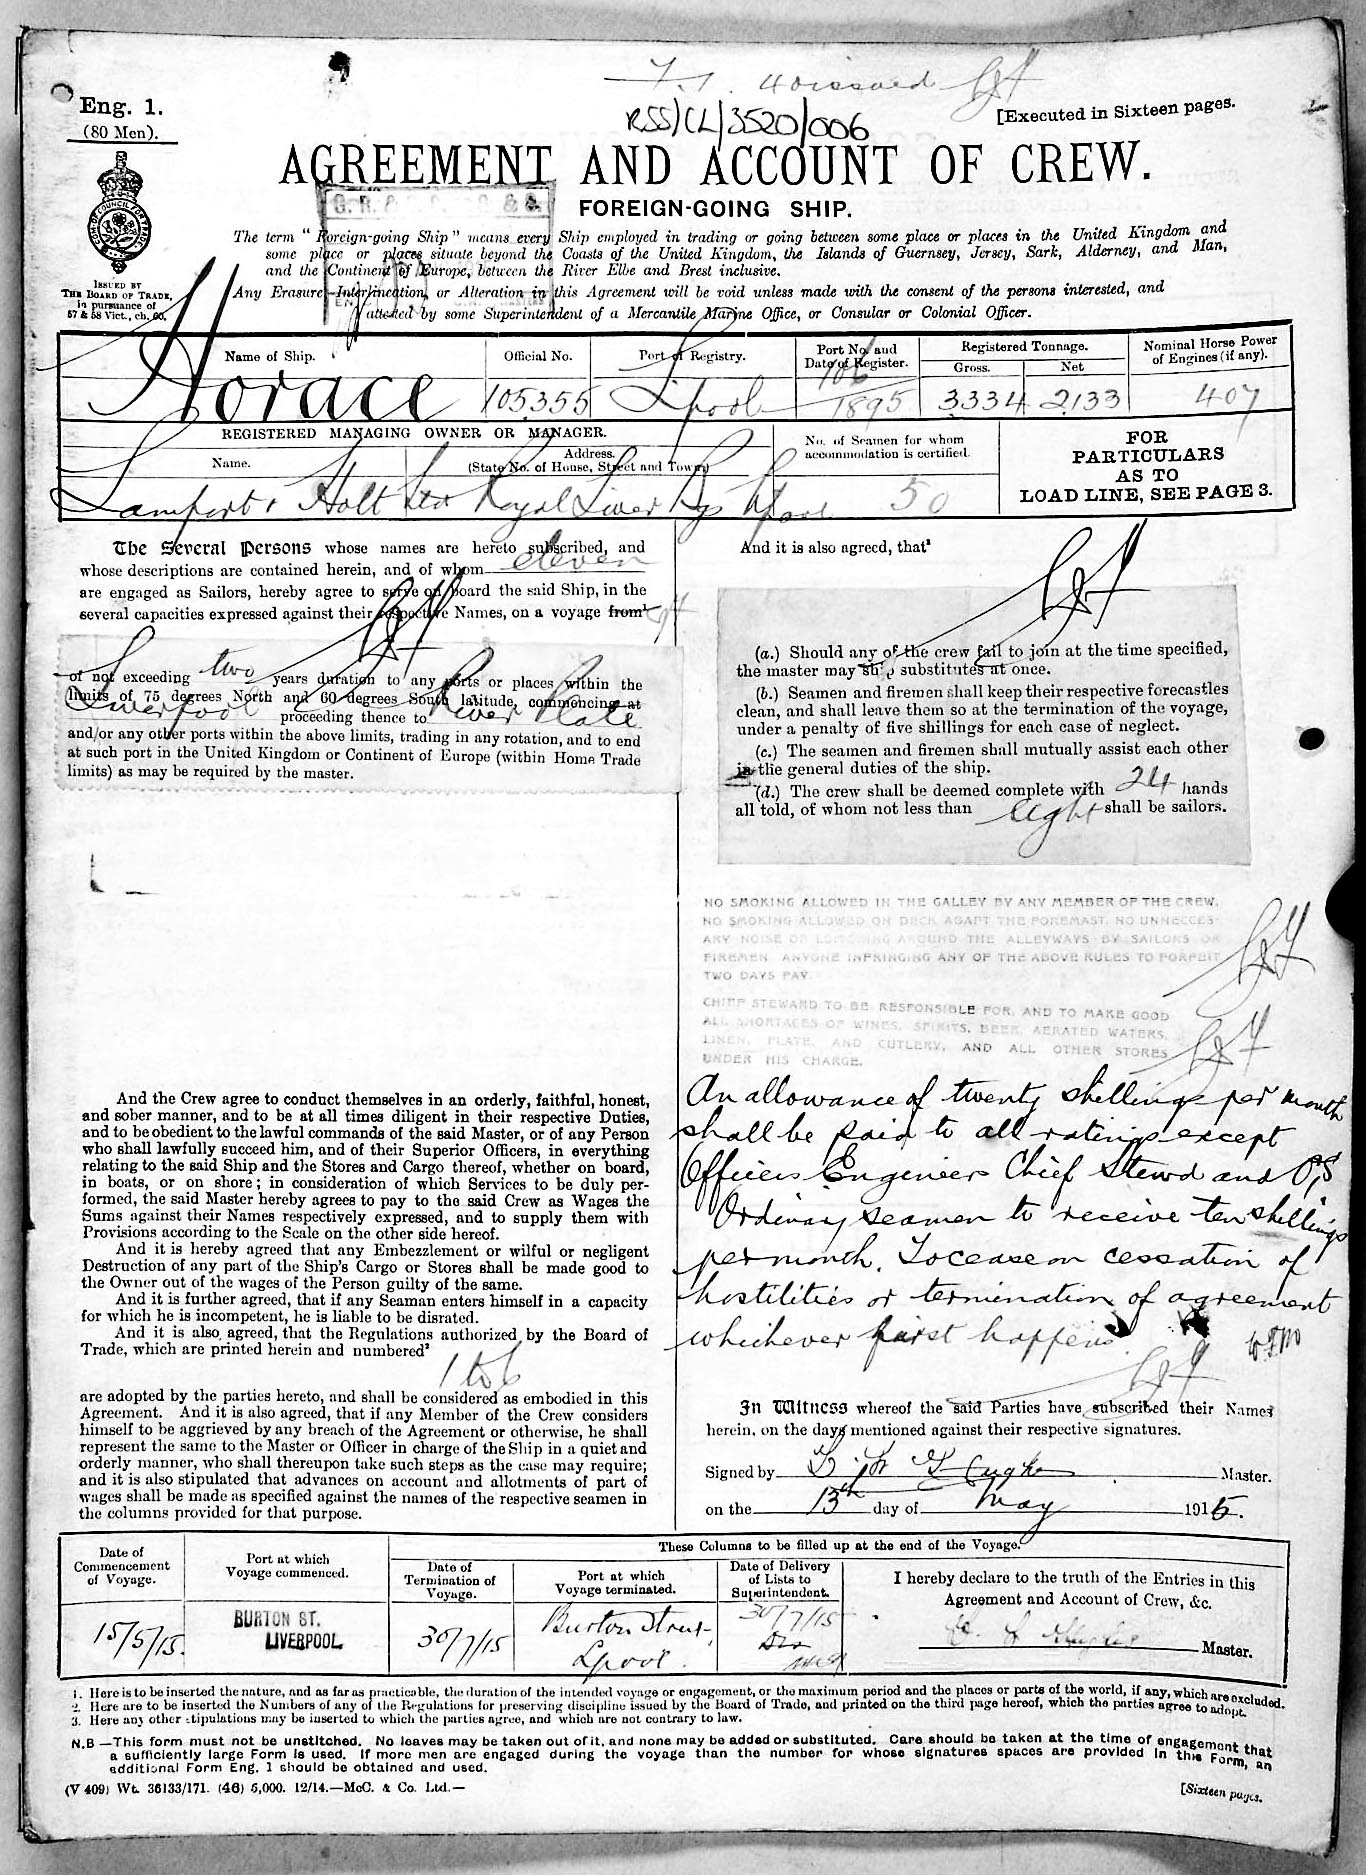 Eng. 1.
(80 Men).
RSS/CL/3520/006
[Executed in Sixteen pages.
AGREEMENT AND ACCOUNT OF CREW.
FOREIGN-GOING SHIP.
The term "Foreign-going Ship" means every Ship employed in trading or going between some place or places in the United Kingdom and
some place or places situate beyond the Coasts of the United Kingdom, the Islands of Guernsey, Jersey, Sark, Alderney, and Man,
and the Continent of Europe, between the River Elbe and Brest inclusive.
Any Erasure, Interlineation, or Alteration in this Agreement will be void unless made with the consent of the persons interested, and
attested by some Superintendent of a Mercantile Marine Office, or Consular or Colonial Officer.
COM. OF COUNCIL FOR TRADE
ISSUED BY
THE BOARD OF TRADE,
in pursuance of
57 & 58 Vict., ch. 60.
Name of Ship.
Official No.
Port of Registry.
Port No. and
Date of Register.
Registered Tonnage.
Gross.
Net
Nominal Horse Power
of Engines (if any).
Horace
105,355
L'pool
106/1895
3334
2133
407
REGISTERED MANAGING OWNER OR MANAGER.
Name.
Address.
(State No. of House, Street and Town)
No. of Seamen for whom
accommodation is certified.
FOR
PARTICULARS
AS TO
LOAD LINE, SEE PAGE 3.
Lamport & Holt Ltd Royal Liver Bgs L'pool
50
The Several Persons whose names are hereto subscribed, and
whose descriptions are contained herein, and of whom eleven
are engaged as Sailors, hereby agree to serve on board the said Ship, in the
several capacities expressed against their respective Names, on a voyage from¹
of not exceeding two years duration to any ports or places within the
limits of 75 degrees North and 60 degrees South latitude, commencing at
Liverpool proceeding thence to River Plate
and/or any other ports within the above limits, trading in any rotation, and to end
at such port in the United Kingdom or Continent of Europe (within Home Trade
limits) as may be required by the master.
And the Crew agree to conduct themselves in an orderly, faithful, honest,
and sober manner, and to be at all times diligent in their respective Duties,
and to be obedient to the lawful commands of the said Master, or of any Person
who shall lawfully succeed him, and of their Superior Officers, in everything
relating to the said Ship and the Stores and Cargo thereof, whether on board,
in boats, or on shore; in consideration of which Services to be duly per-
formed, the said Master hereby agrees to pay to the said Crew as Wages the
Sums against their Names respectively expressed, and to supply them with
Provisions according to the Scale on the other side hereof.
And it is hereby agreed that any Embezzlement or wilful or negligent
Destruction of any part of the Ship's Cargo or Stores shall be made good to
the Owner out of the wages of the Person guilty of the same.
And it is further agreed, that if any Seaman enters himself in a capacity
for which he is incompetent, he is liable to be disrated.
And it is also agreed, that the Regulations authorized by the Board of
Trade, which are printed herein and numbered²
1 to 6
are adopted by the parties hereto, and shall be considered as embodied in this
Agreement. And it is also agreed, that if any Member of the Crew considers
himself to be aggrieved by any breach of the Agreement or otherwise, he shall
represent the same to the Master or Officer in charge of the Ship in a quiet and
orderly manner, who shall thereupon take such steps as the case may require;
and it is also stipulated that advances on account and allotments of part of
wages shall be made as specified against the names of the respective seamen in
the columns provided for that purpose.
And it is also agreed, that³
(a.) Should any of the crew fail to join at the time specified,
the master may ship substitutes at once.
(b.) Seamen and firemen shall keep their respective forecastles
clean, and shall leave them so at the termination of the voyage,
under a penalty of five shillings for each case of neglect.
(c.) The seamen and firemen shall mutually assist each other
in the general duties of the ship.
(d.) The crew shall be deemed complete with 24 hands
all told, of whom not less than eight shall be sailors.
NO SMOKING ALLOWED IN THE GALLEY BY ANY MEMBER OF THE CREW.
NO SMOKING ALLOWED ON DECK ABAFT THE FOREMAST. NO UNNECCES-
ARY NOISE OR LOITERING AROUND THE ALLEYWAYS BY SAILORS OR
FIREMEN. ANYONE INFRINGING ANY OF THE ABOVE RULES TO FORFEIT
TWO DAYS PAY.
CHIEF STEWARD TO BE RESPONSIBLE FOR, AND TO MAKE GOOD
ALL SHORTAGES OF WINES, SPIRITS, BEER, AERATED WATERS,
LINEN, PLATE, AND CUTLERY, AND ALL OTHER STORES
UNDER HIS CHARGE.
An allowance of twenty shillings per month
shall be paid to all ratings except
Officers Engineers Chief Stewd and O,S
Ordinary seamen to receive ten shillings
per month. To cease on cessation of
hostilities or termination of agreement
whichever first happens.
In Witness whereof the said Parties have subscribed their Names
herein, on the days mentioned against their respective signatures.
Signed by Hughes Master.
on the 13th day of May 1915.
Date of
Commencement
of Voyage.
Port at which
Voyage commenced.
These Columns to be filled up at the end of the Voyage.
Date of
Termination of
Voyage.
Port at which
Voyage terminated.
Date of Delivery
of Lists to
Superintendent.
I hereby declare to the truth of the Entries in this
Agreement and Account of Crew, &c.
15/5/15.
BURTON ST.
LIVERPOOL
30/7/15
Burton Street,
Lpool.
30/7/15
Hughes Master.
1. Here is to be inserted the nature, and as far as practicable, the duration of the intended voyage or engagement, or the maximum period and the places or parts of the world, if any, which are excluded.
2. Here are to be inserted the Numbers of any of the Regulations for preserving discipline issued by the Board of Trade, and printed on the third page hereof, which the parties agree to adopt.
3. Here any other stipulations may be inserted to which the parties agree, and which are not contrary to law.
N.B —This form must not be unstitched. No leaves may be taken out of it, and none may be added or substituted. Care should be taken at the time of engagement that
a sufficiently large Form is used. If more men are engaged during the voyage than the number for whose signatures spaces are provided in this Form, an
additional Form Eng. 1 should be obtained and used.
(V 409) Wt. 36133/171. (46) 5,000. 12/14.—McC. & Co. Ltd.—
[Sixteen pages.